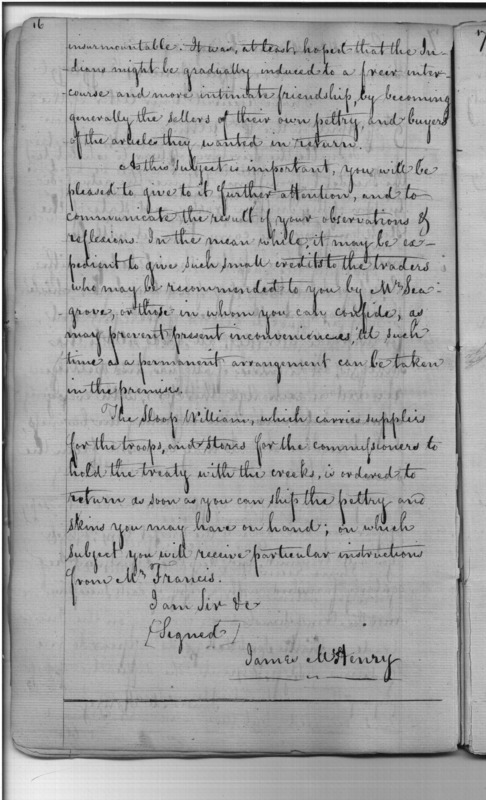 16
insurmountable. It was, at least, hoped that the In-
dians might be gradually induced to a freer inter-
course and more intimate friendship, by becoming
generally the sellers of their own peltry and buyers
of the articles they wanted in return.
As this subject is important, you will be
pleased to give to it further attention, and to
communicate the result of your observations &
reflexions. In the mean while, it may be ex-
pedient to give such small credits to the traders
who may be recommended to you by Mr Sea-
grove, or those in whom you can confide, as
may prevent present inconveniences, til such
time as a permanent arrangement can be taken
in the premises.
The Sloop William, which carries supplies
for the troops, and stores for the commissioners to
hold the treaty with the creeks, is ordered to
return as soon as you can ship the peltry and
skins you may have on hand; on which
subject you will receive particular instructions
from Mr Francis.
I am Sir &c
[Signed]
James McHenry